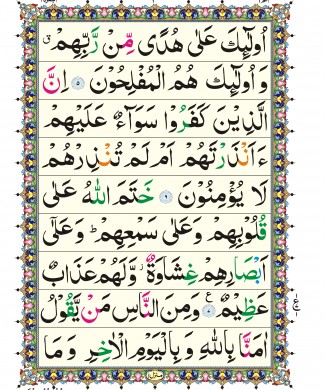 اُولٰٓئِكَ عَلٰى هُدًى مِّنْ رَّبِّهِمْ ۙ
وَ اُولٰٓئِكَ هُمُ الْمُفْلِحُوْنَ ۵ اِنَّ
الَّذِيْنَ كَفَرُوْا سَوَآءٌ عَلَيْهِمْ
ءَاَنْذَرْتَهُمْ اَمْ لَمْ تُنْذِرْهُمْ
لَا يُؤْمِنُوْنَ ۶ خَتَمَ اللّٰهُ عَلٰى
قُلُوْبِهِمْ وَعَلٰى سَمْعِهِمْ ؕ وَعَلٰٓى
اَبْصَارِهِمْ غِشَاوَةٌ ؗ وَّلَهُمْ عَذَابٌ
عَظِيْمٌ ۷ وَمِنَ النَّاسِ مَنْ يَّقُوْلُ
اٰمَنَّا بِاللّٰهِ وَ بِالْيَوْمِ الْاٰخِرِ وَ مَا